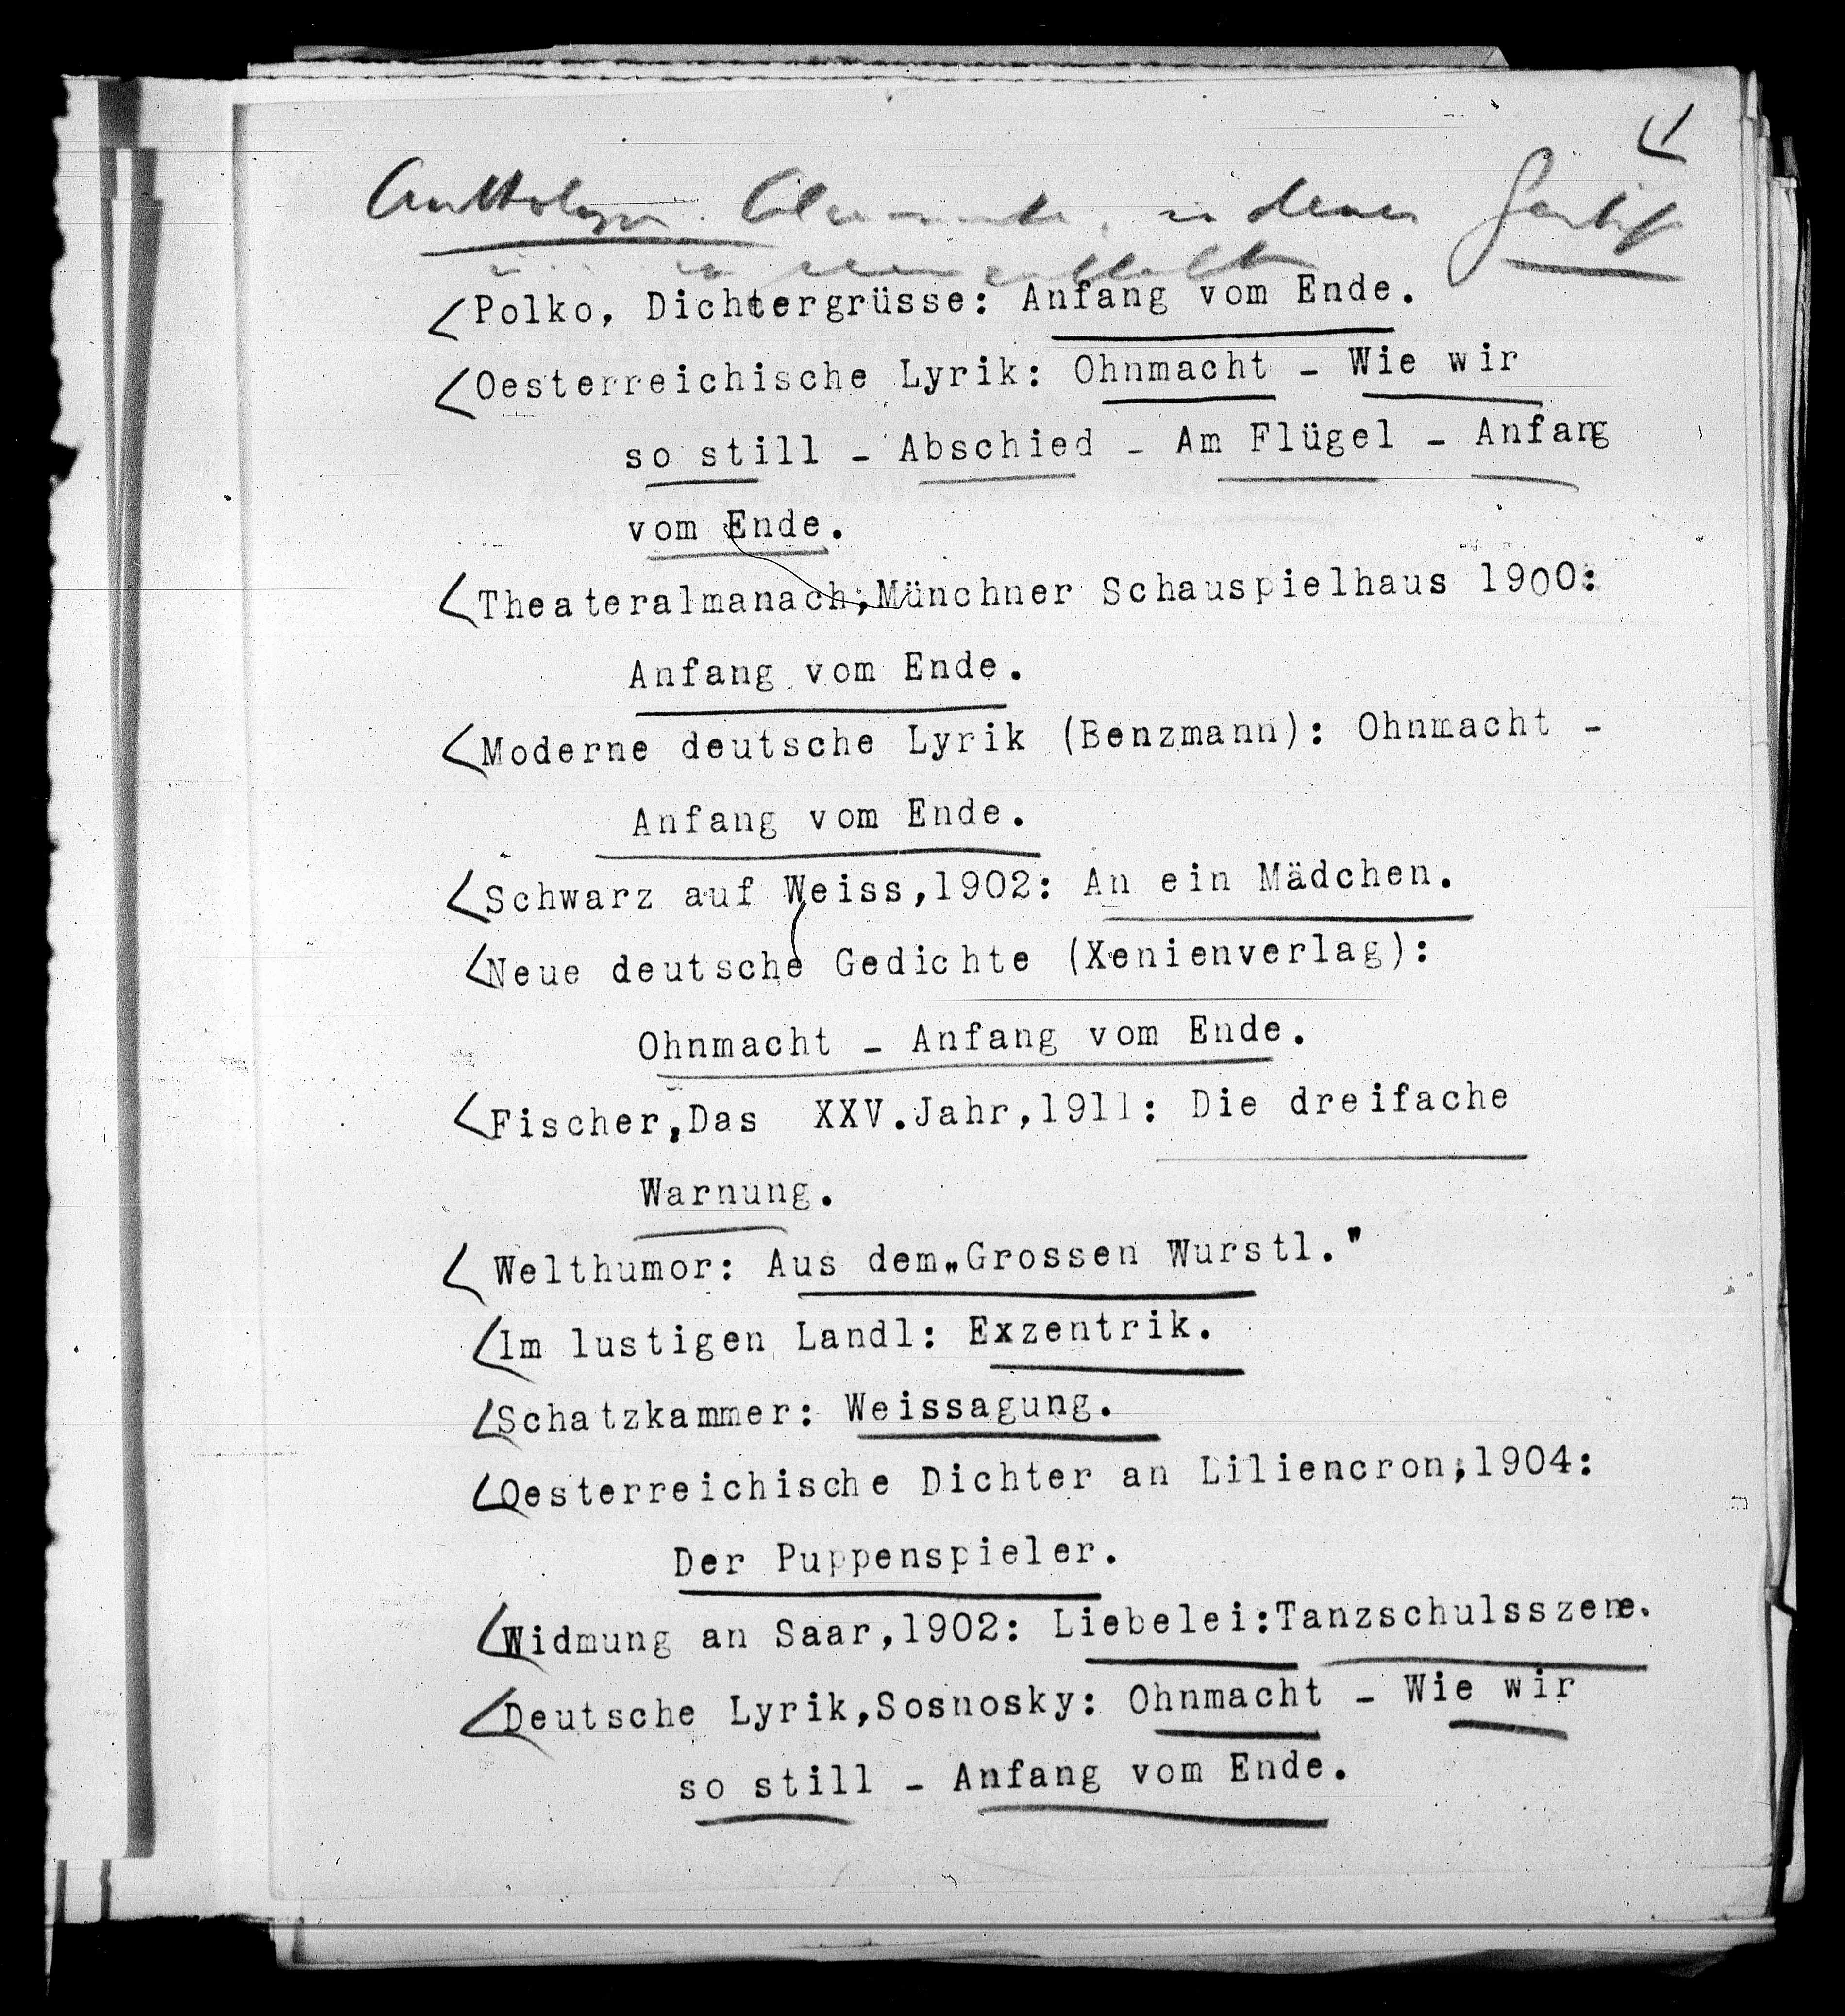 in denen
Polko, Dichtergrüsse: Anfang vom Ende.
Oesterreichische Lyrik: Ohnmacht - Wie wir
so still - Abschied - Am Flügel - Anfang
vom Ende.
Theateralmanach, Münchner Schauspielhaus 1900:
Anfang vom Ende.
Moderne deutsche Lyrik (Benzmann): Ohnmacht -
Anfang vom Ende.
Schwarz auf Weiss,1902: An ein Mädchen.
Neue deutsche Gedichte (Xenienverlag):
Ohnmacht - Anfang vom Ende.
Fischer,Das XXV.Jahr,1911: Die dreifache
Warnung.
Welthumor: Aus dem„Grossen Wurstl."
Im lustigen Landl: Exzentrik.
Schatzkammer: Weissagung.
Oesterreichische Dichter an Liliencron,1904:
Der Puppenspieler.
Widmung an Saar,1902: Liebelei:Tanzschulsszene.
Deutsche Lyrik,Sosnosky: Ohnmacht - Wie wir
so still - Anfang vom Ende.